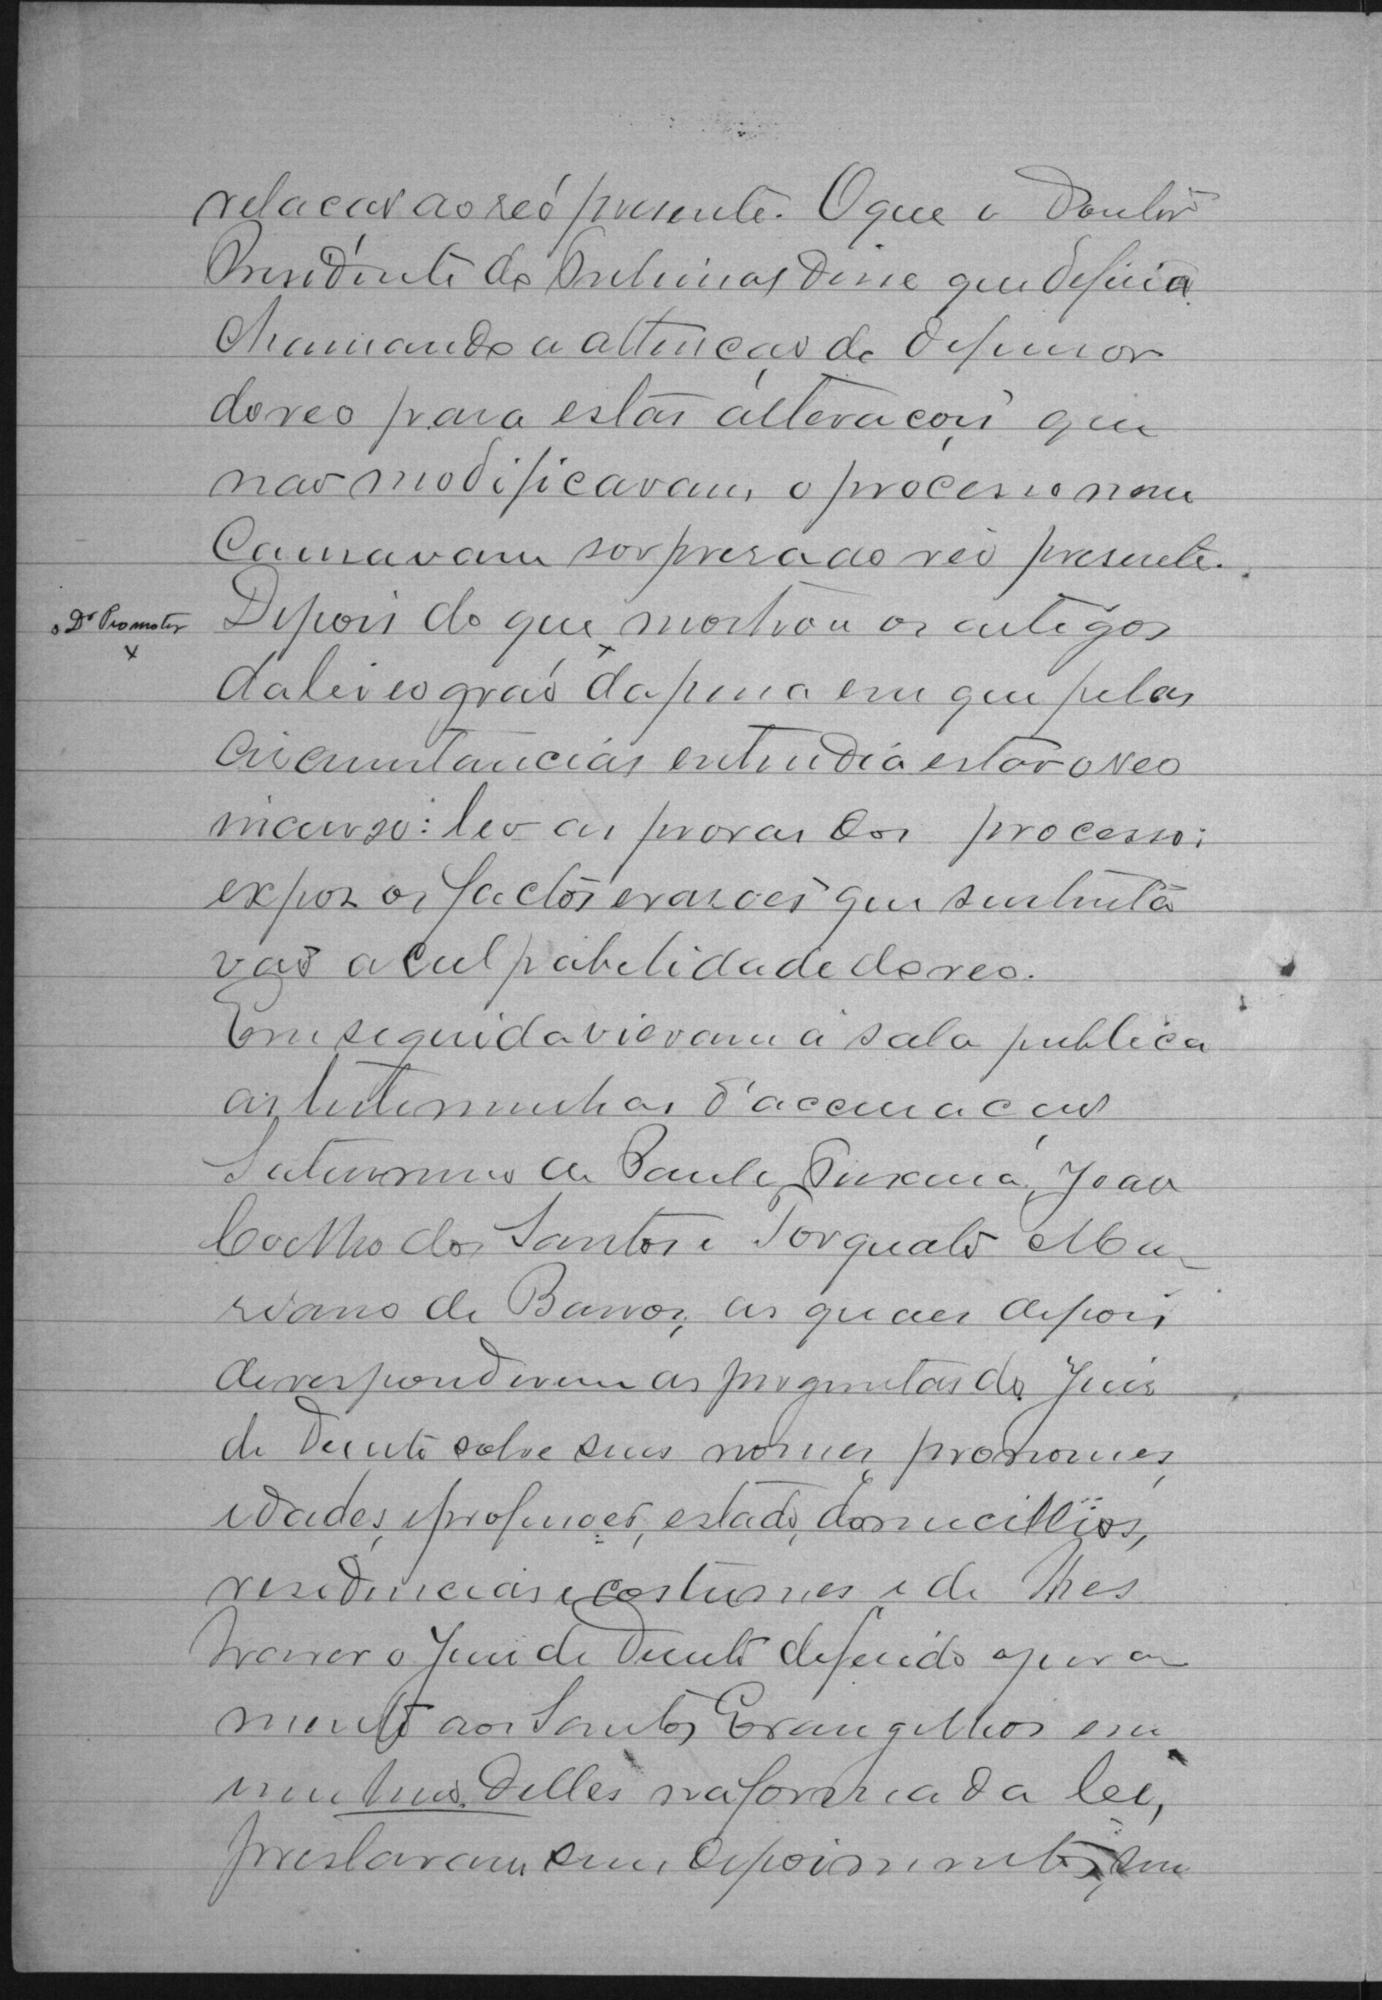 relação ao reo presente. O que o Doutor
Presidente do Tribunal disse que deferia
chamando a attenção do defensor
do reo para estas alterações que
não modificavam o processo nem
causavam sorpresa ao reo presente.
o Dr Promotor
x
Depois do que mostrou os artigos
da lei e o gráo da pena em que pelas
circumstancias entendia estar o reo
incurso: leo as provas dos processo;
expoz os factos e rasoes que sustentá
vaõ a culpabelidade do reo.
Em seguida vieram á sala publica
as testemunhas d'accusação
de Paula João
Coelho dos Santos e Torquato Ma-
riano de Barros, as quaes depois
de responderem as preguntas do Juis
de Direito sobre seus nomes, pronomes,
idades, profissoes, estado, domicilios,
residencias e costumes e de lhes
haver o Juis de Direito deferido o jura
mento aos Santos Evangelhos em
delles na forma da lei,
prestaram seus depoimentos, sem